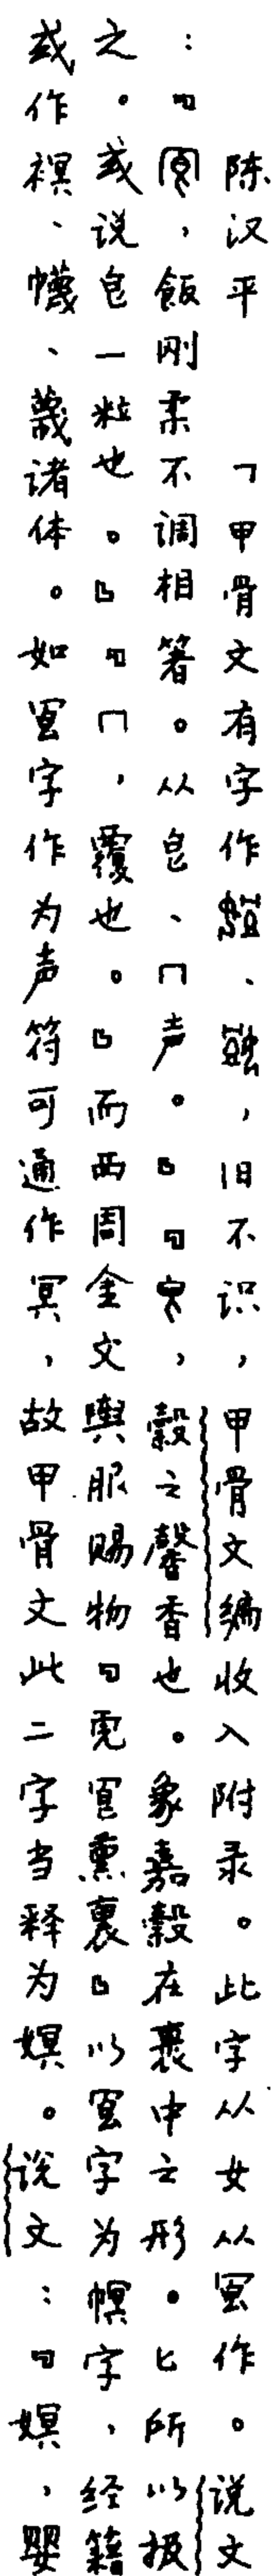 陈汉平 「甲骨文有字作、，旧不识，甲骨文编收入附录。此字从女从冟作。说文
：「冟，飯刚柔不调相箸。从皀、冖声。」「皀，穀之馨香也。象嘉穀在裹中之形。匕所以扱
之。或说皀一粒也。」「冖，覆也。」而西周金文舆服赐物「虎冟熏裏」以冟字为幎字，经籍
或作幎、幭、蔑诸体。如冟字作为声符可通作冥，故甲骨文此二字当释为嫇。说文：「嫇，婴